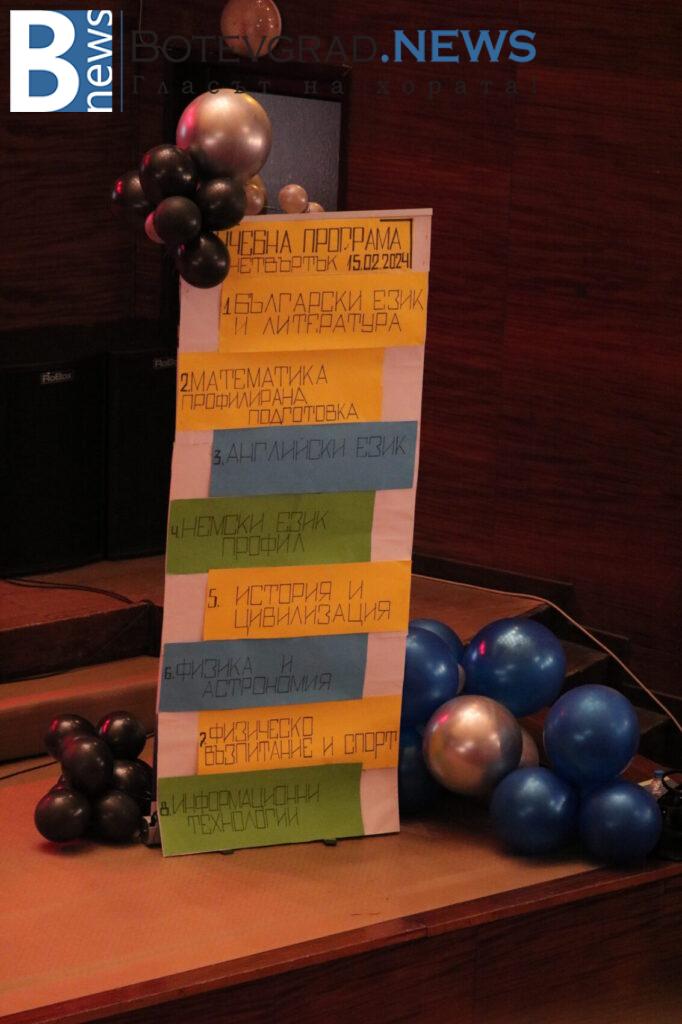 B news
BOTEVGRAD.NEWS
Гласът на хората!
УЧЕБНА ПРОГРАМА
ЧЕТВЪРТЪК 15.02.2024
1.БЪЛГАРСКИ ЕЗИК
И ЛИТЕРАТУРА
2.МАТЕМАТИКА
ПРОФИЛИРАНА
ПОДГОТОВКА
3.АНГЛИЙСКИ ЕЗИК
4.НЕМСКИ ЕЗИК
ПРОФИЛ
5. ИСТОРИЯ И
ЦИВИЛИЗАЦИЯ
6.ФИЗИКА И
АСТРОНОМИЯ
7.ФИЗИЧЕСКО
ВЪЗПИТАНИЕ И СПОРТ
8.ИНФОРМАЦИОННИ
ТЕХНОЛОГИИ
RoBox